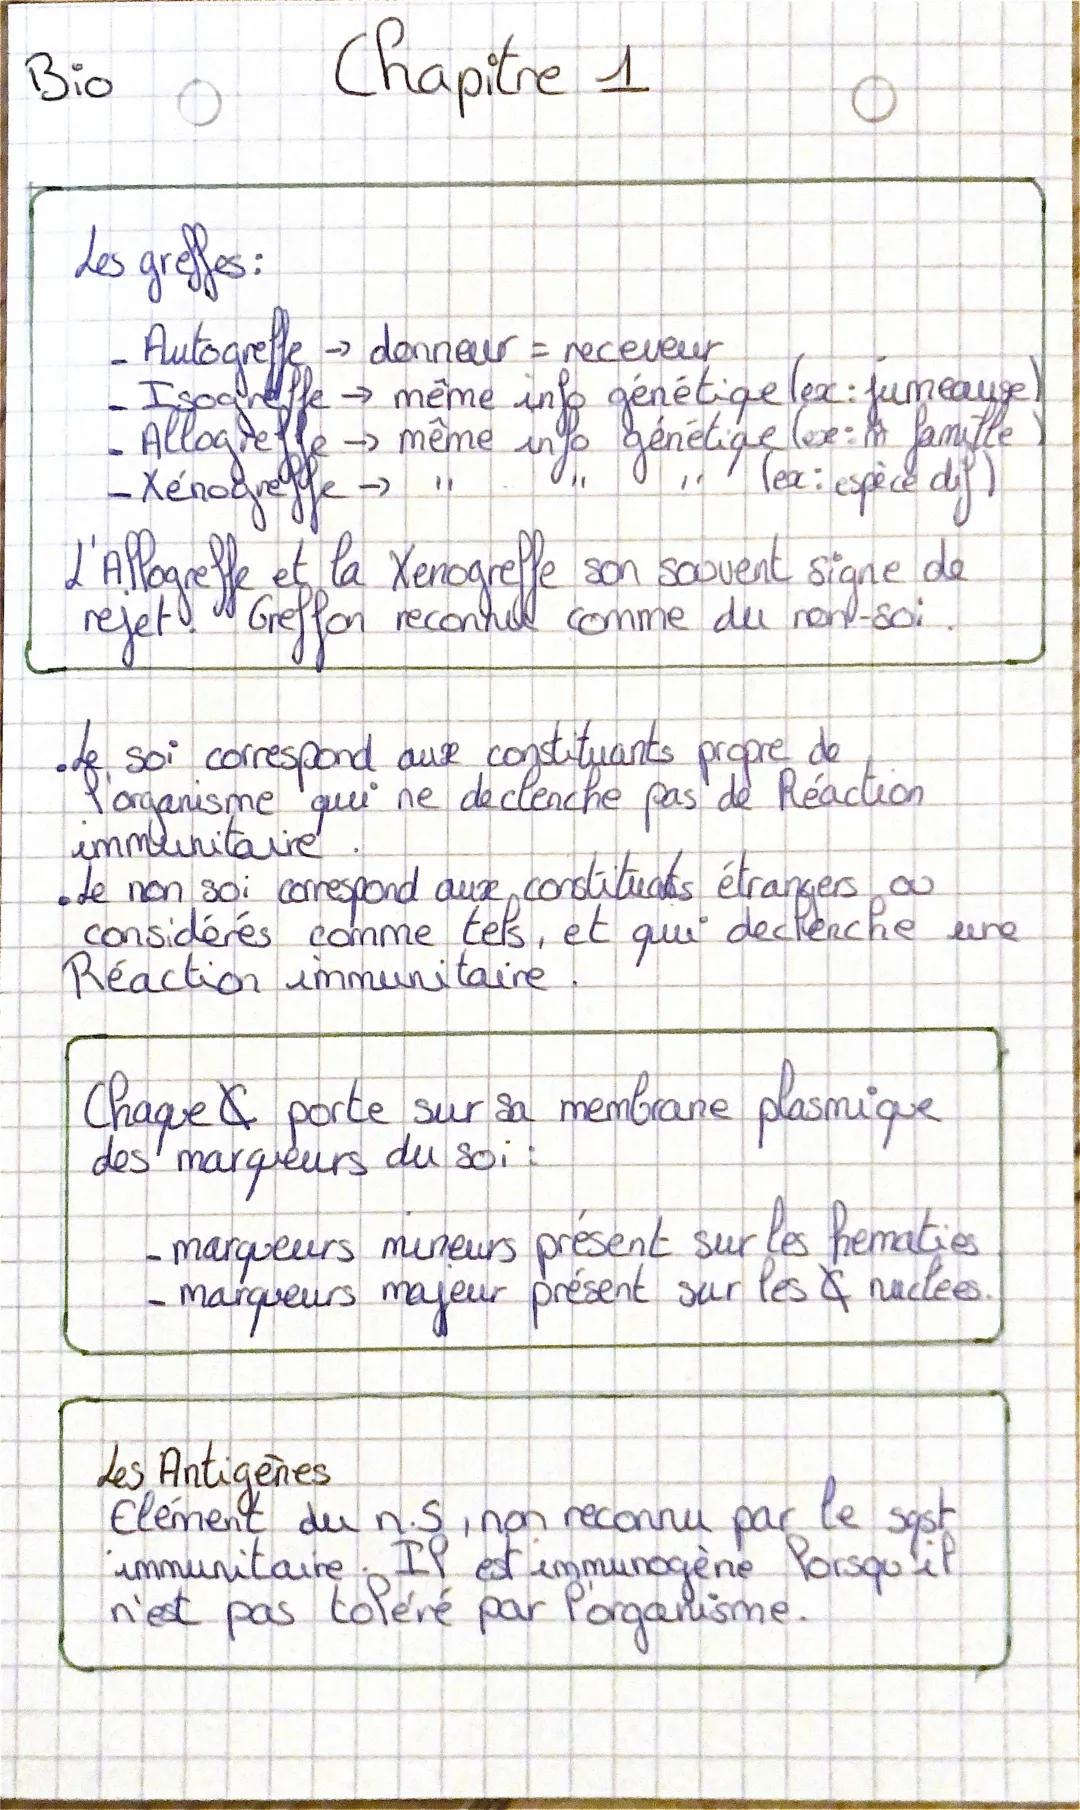 Bio
Chapitre 1
Les greffes :
- Autogreffe → donneur = receveur
- Isogreffe → même info génétiqe (ex : jumeauxe)
- Allogreffe → même info génétiqe (exe : famille)
- Xénogreffe → " " " (ex : espèce dif)
L'Allogreffe et la Xenogreffe son souvent signe de
rejet. Greffon reconnue comme du non-soi.
. Le soi correspond aux constituants propre de
l'organisme qui ne declenche pas de Réaction
immunitaire.
. Le non soi correspond aux constituats étrangers ou
considérés comme tels, et qui declenche une
Réaction immunitaire.
Chaque porte sur sa membrane plasmique
des marqueurs du soi :
- marqueurs mineurs présent sur les hematies
- marqueurs majeur présent sur les nuclees.
Les Antigènes
Elément du n.S, non reconnu par le syst
immunitaire. Il est immunogène lorsqu'il
n'est pas toléré par l'organisme.